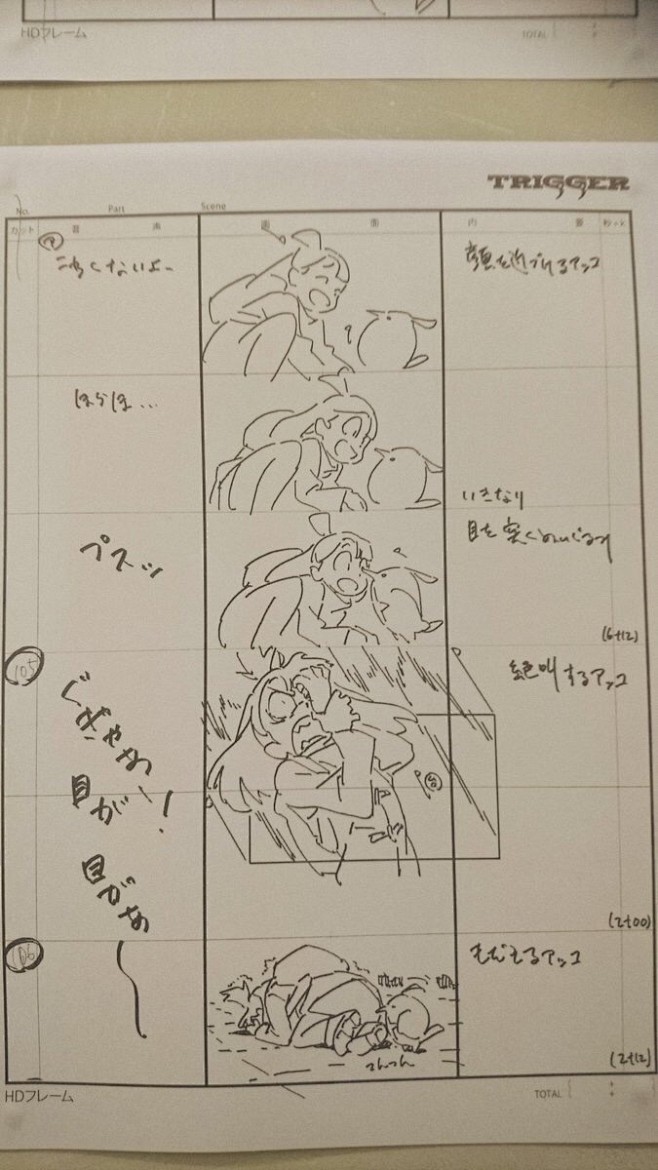 HDフレーム
TOTAL
TRIGGER
No.
Part
Scene
カット
音 声
画 面
内 容
秒
顔を近づけるアッコ
ほらほ…
いきなり
プスッ
(6+12)
105
絶叫するアッコ
ぎゃああ
目がー!
目がぁ
(2+00)
106
もだえるアッコ
つんつん
(2+12)
HDフレーム
TOTAL